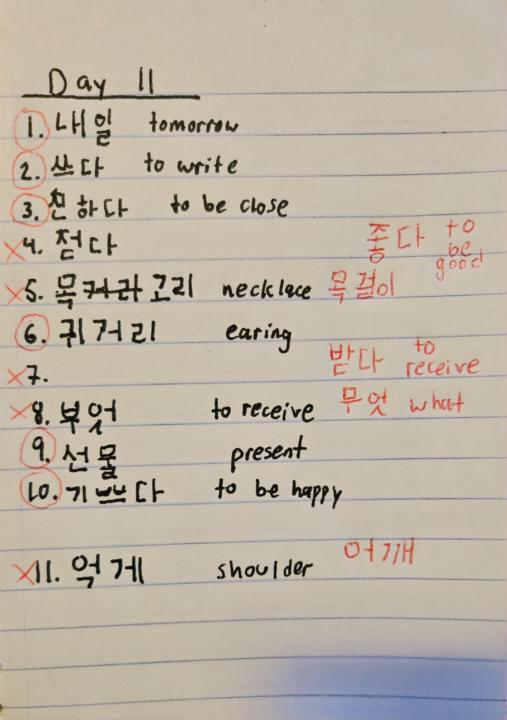 Day 11
1. 내일 tomorrow
2. 쓰다 to write
3. 친하다 to be close
4. 젇다 좋다 to be good
5. 목거라고리 necklace 목걸이
6. 귀거리 earing
7. 받다 to receive
8. 부엇 to receive 무엇 what
9. 선물 present
10. 기쁘다 to be happy
11. 억게 shoulder 어깨